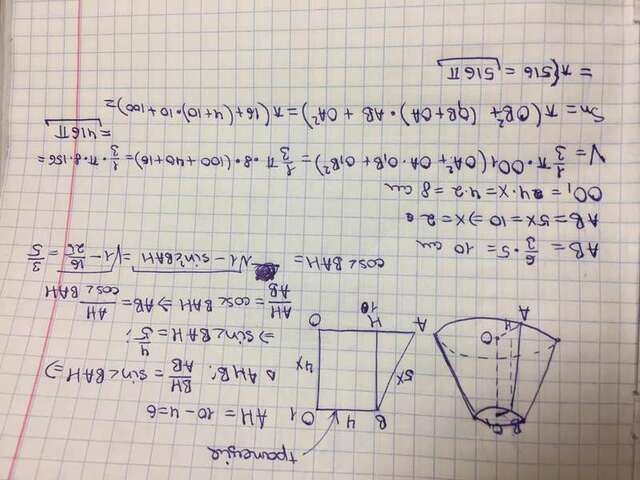 трапеція
B 4 O1
5x 4x
A H O
10
AH = 10 - 4 = 6
Δ AHB: BH/AB = sin∠BAH ⇒
⇒ sin∠BAH = 4/5;
AH/AB = cos∠BAH ⇒ AB = AH/cos∠BAH
cos∠BAH = √1 - sin²∠BAH = √1 - 16/25 = 3/5
AB = 6/3 · 5 = 10 см
AB = 5x = 10 ⇒ x = 2
OO₁ = 4·x = 4·2 = 8 см
V = 1/3 π · OO1(OA² + OA·O₁B + O₁B²) = 1/3 π · 8 · (100 + 40 + 16) = 1/3 · π · 8 · 156 =
= 416π
Sп = π(OB² + (OB + OA) · AB + OA²) = π(16 + (4+10)·10 + 100) =
= π(516 = 516π